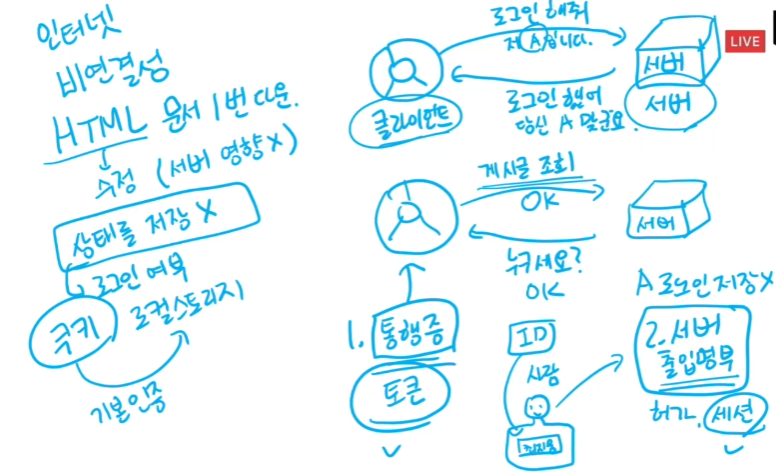 인터넷
비연결성
HTML 문서 1번 다운.
수정 (서버 영향X)
상태를 저장 X
로그인 여부
쿠키 로컬스토리지
기본인증
로그인 해줘
저 A입니다.
LIVE
서버
서버
클라이언트
로그인 했어
당신 A 맞군요.
게시글 조회
OK
서버
누구세요?
OK
1. 통행증
토큰
ID
사람
A 로그인 저장X
2. 서버
출입명부
허가. 세션